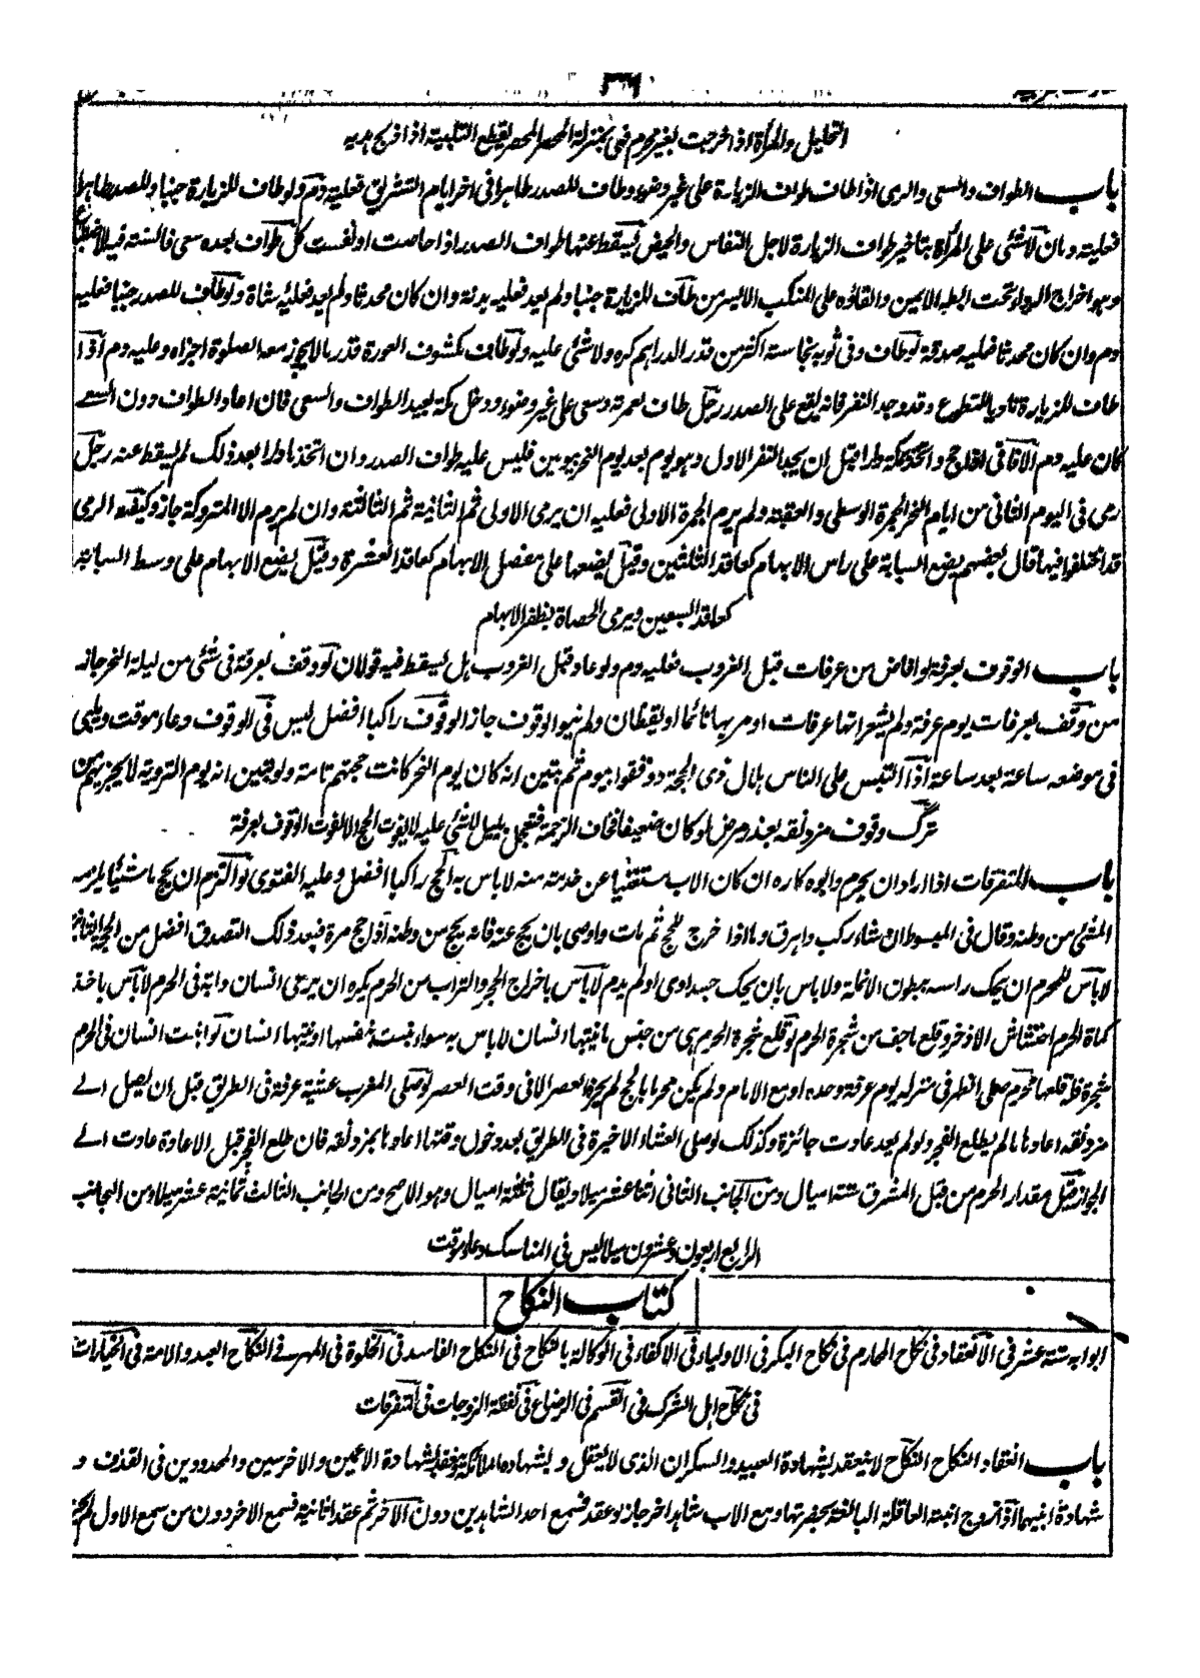 ٣٦
التحليل والمرأة اذا خرجت بغير محرم فهى بمنزلة المحصر المحصر يقطع التلبية اذا ذبح هديه
باب الطواف والسعى والرمى اذا طاف طواف الزيارة على غير وضوء وطاف للصدر طاهرا فى اخر ايام التشريق فعليه دم ولو طاف للزيارة جنبا وللصدر طاهرا
فعليه دمان لا شئى على المرأة بتاخير طواف الزيارة لاجل النفاس والحيض يسقط عنها طواف الصدر اذا حاضت او نفست كل طواف بعده سعى فالسنة فيه الاضطباع
وهو اخراج الرداء تحت ابطه الايمن والقاؤه على المنكب الايسر من طاف للزيارة جنبا ولم يعد فعليه بدنة وان كان محدثا ولم يعد فعليه شاة ولو طاف للصدر جنبا فعليه
دم وان كان محدثا فعليه صدقة لو طاف وفى ثوبه نجاسة اكثر من قدر الدراهم كره ولا شئى عليه ولو طاف مكشوف العورة قدر ما لا يجوز معه الصلوة اجزاه وعليه دم اذا
طاف للزيارة ناويا للتطوع وقد وجد النفر فانه يقع على الصدر رجل طاف لعمرته وسعى على غير وضوء ودخل مكة يعيد الطواف والسعى فان اعاد الطواف دون السعى
كان عليه دم الآفاقى اذا حج واتخذ مكة دارا قبل ان يحل النفر الاول وهو يوم بعد يوم النحر بيومين فليس عليه طواف الصدر وان اتخذها دارا بعد ذلك لم يسقط عنه رجل
رمى فى اليوم الثانى من ايام النحر الجمرة الوسطى والعقبة ولم يرم الجمرة الاولى فعليه ان يرمى الاولى ثم الثانية ثم الثالثة وان لم يرم الا المتروكة جاز وكيفية الرمى
قد اختلفوا فيها قال بعضهم يضع السبابة على راس الابهام كعاقد الثلثين وقيل يضعها على مفصل الابهام كعاقد العشرة وقيل يضع الابهام على وسط السبابة
كعاقد السبعين ويرمى الحصاة بظفر الابهام
باب الوقوف بعرفة لو افاض من عرفات قبل الغروب فعليه دم ولو عاد قبل الغروب هل يسقط فيه قولان لو وقف بعرفة فى شئى من ليلة النحر جاز
من وقف بعرفات يوم عرفة ولم يشعر انها عرفات او مر بها نائما او يقظان ولم ينو الوقوف جاز الوقوف راكبا افضل ليس فى الوقوف دعاء موقت ويلبى
فى موضعه ساعة بعد ساعة اذا التبس على الناس هلال ذى الحجة ووقفوا بيوم ثم تبين انه كان يوم النحر كانت حجتهم تامة ولو تبين انه يوم التروية لا يجزيهم من
ترك وقوف مزدلفة بعذر مرض او كان ضعيفا فخاف الزحمة فتعجل بليل لا شئى عليه لا يفوت الحج الا بفوت الوقوف بعرفة
باب المتفرقات اذا اراد ان يحرم وابوه كاره ان كان الاب مستغنيا عن خدمته منه لا باس به الحج راكبا افضل وعليه الفتوى لو التزم ان يحج ماشيا يلزمه
المشئى من وطنه وقال فى المبسوط ان شاء ركب واهرق دما اذا خرج للحج ثم مات واوصى بان يحج عنه فانه يحج من وطنه اذا حج مرة فبعد ذلك التصدق افضل من الحجة الثانية
لا باس للمحرم ان يحك راسه ببطون الانملة ولا باس بان يحك جسده ادمى او لم يدم لا باس باخراج الحجر والتراب من الحرم يكره ان يرعى انسان دابة فى الحرم لا باس باخذ
كماة الحرم احتشاش الاذخر وقلع ما جف من شجرة الحرم لو قلع شجرة الحرم هى من جنس ما ينبتها انسان لا باس به سواء نبت بنفسها او نبتها انسان لو انبت انسان فى الحرم
شجرة فله قلعها محرم صلى الظهر فى منزله يوم عرفة وحده او مع الامام ولم يكن محرما بالحج لم يجز العصر الا فى وقت العصر لو صلى المغرب عشية عرفة فى الطريق قبل ان يصل الى
مزدلفة اعادها ما لم يطلع الفجر ولو لم يعد عادت جائزة وكذلك لو صلى العشاء الاخيرة فى الطريق بعد دخول وقتها اعادها بمزدلفة فان طلع الفجر قبل الاعادة عادت الى
الجواز قيل مقدار الحرم من قبل المشرق ستة اميال ومن الجانب الثانى اثنا عشر ميلا ويقال ثلثة اميال وهو الاصح ومن الجانب الثالث ثمانية عشر ميلا ومن الجانب
الرابع اربعون وعشرون ميلا ليس فى المناسك دعاء موقت
كتاب النكاح
ابوابه ستة عشر فى الانعقاد فى نكاح المحارم فى نكاح البكر فى الاولياء فى الاكفاء فى الوكالة بالنكاح فى النكاح الفاسد فى الخلوة فى المهر فى النكاح العبد والامة فى الخيارات
فى نكاح اهل الشرك فى القسم فى الرضاع فى نفقة الزوجات فى المتفرقات
باب انعقاد النكاح النكاح لا ينعقد بشهادة العبيد والسكران الذى لا يعقل و بشهادة الملائكة ينعقد بشهادة الاعمين والاخرسين والمحدودين فى القذف و
شهادة ابنيهما اذا زوج ابنته العاقلة البالغة بحضرتها ومع الاب شاهد اخر جاز لو عقد فسمع احد الشاهدين دون الآخر ثم عقد ثانية فسمع الاخر دون من سمع الاول لم يجز